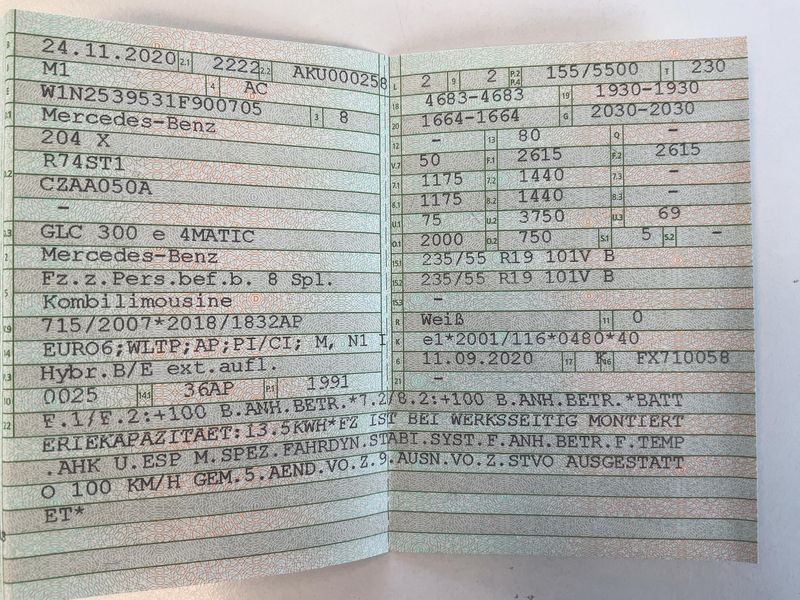 24.11.2020 2.1 2222 2.2 AKU000258
M1 4 AC
W1N2539531F900705
Mercedes-Benz 3 8
204 X
R74ST1
CZAA050A
-
GLC 300 e 4MATIC
Mercedes-Benz
Fz.z.Pers.bef.b. 8 Spl.
Kombilimousine
715/2007*2018/1832AP
EURO6;WLTP;AP;PI/CI; M, N1 I
Hybr.B/E ext.aufl.
0025 14.1 36AP P.1 1991
L 2 9 2 P.2 P.4 155/5500 T 230
18 4683-4683 19 1930-1930
20 1664-1664 G 2030-2030
- 13 80 Q -
V.7 50 F.1 2615 F.2 2615
7.1 1175 7.2 1440 7.3 -
8.1 1175 8.2 1440 8.3 -
U.1 75 U.2 3750 U.3 69
O.1 2000 O.2 750 S.1 5 S.2 -
15.1 235/55 R19 101V B
15.2 235/55 R19 101V B
15.3 -
R Weiß 11 0
K e1*2001/116*0480*40
6 11.09.2020 17 K 16 FX710058
21 -
F.1/F.2:+100 B.ANH.BETR.*7.2/8.2:+100 B.ANH.BETR.*BATT
ERIEKAPAZITAET:13.5KWH*FZ IST BEI WERKSSEITIG MONTIERT
.AHK U.ESP M.SPEZ.FAHRDYN.STABI.SYST.F.ANH.BETR.F.TEMP
O 100 KM/H GEM.5.AEND.VO.Z.9.AUSN.VO.Z.STVO AUSGESTATT
ET*